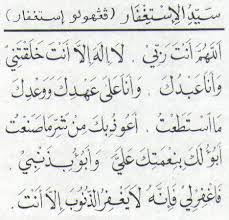 سَيِّدُ الْإِسْتِغْفَار (ڤڠهولو إستغفار)
اَللّٰهُمَّ أَنْتَ رَبِّي . لَا إِلٰهَ إِلَّا أَنْتَ خَلَقْتَنِي
وَأَنَا عَبْدُكَ . وَأَنَا عَلَى عَهْدِكَ وَوَعْدِكَ
مَا اسْتَطَعْتُ . أَعُوْذُ بِكَ مِنْ شَرِّ مَا صَنَعْتُ
أَبُوْءُ لَكَ بِنِعْمَتِكَ عَلَيَّ . وَأَبُوْءُ بِذَنْبِيْ .
فَاغْفِرْ لِي فَإِنَّهُ لَا يَغْفِرُ الذُّنُوْبَ إِلَّا أَنْتَ .